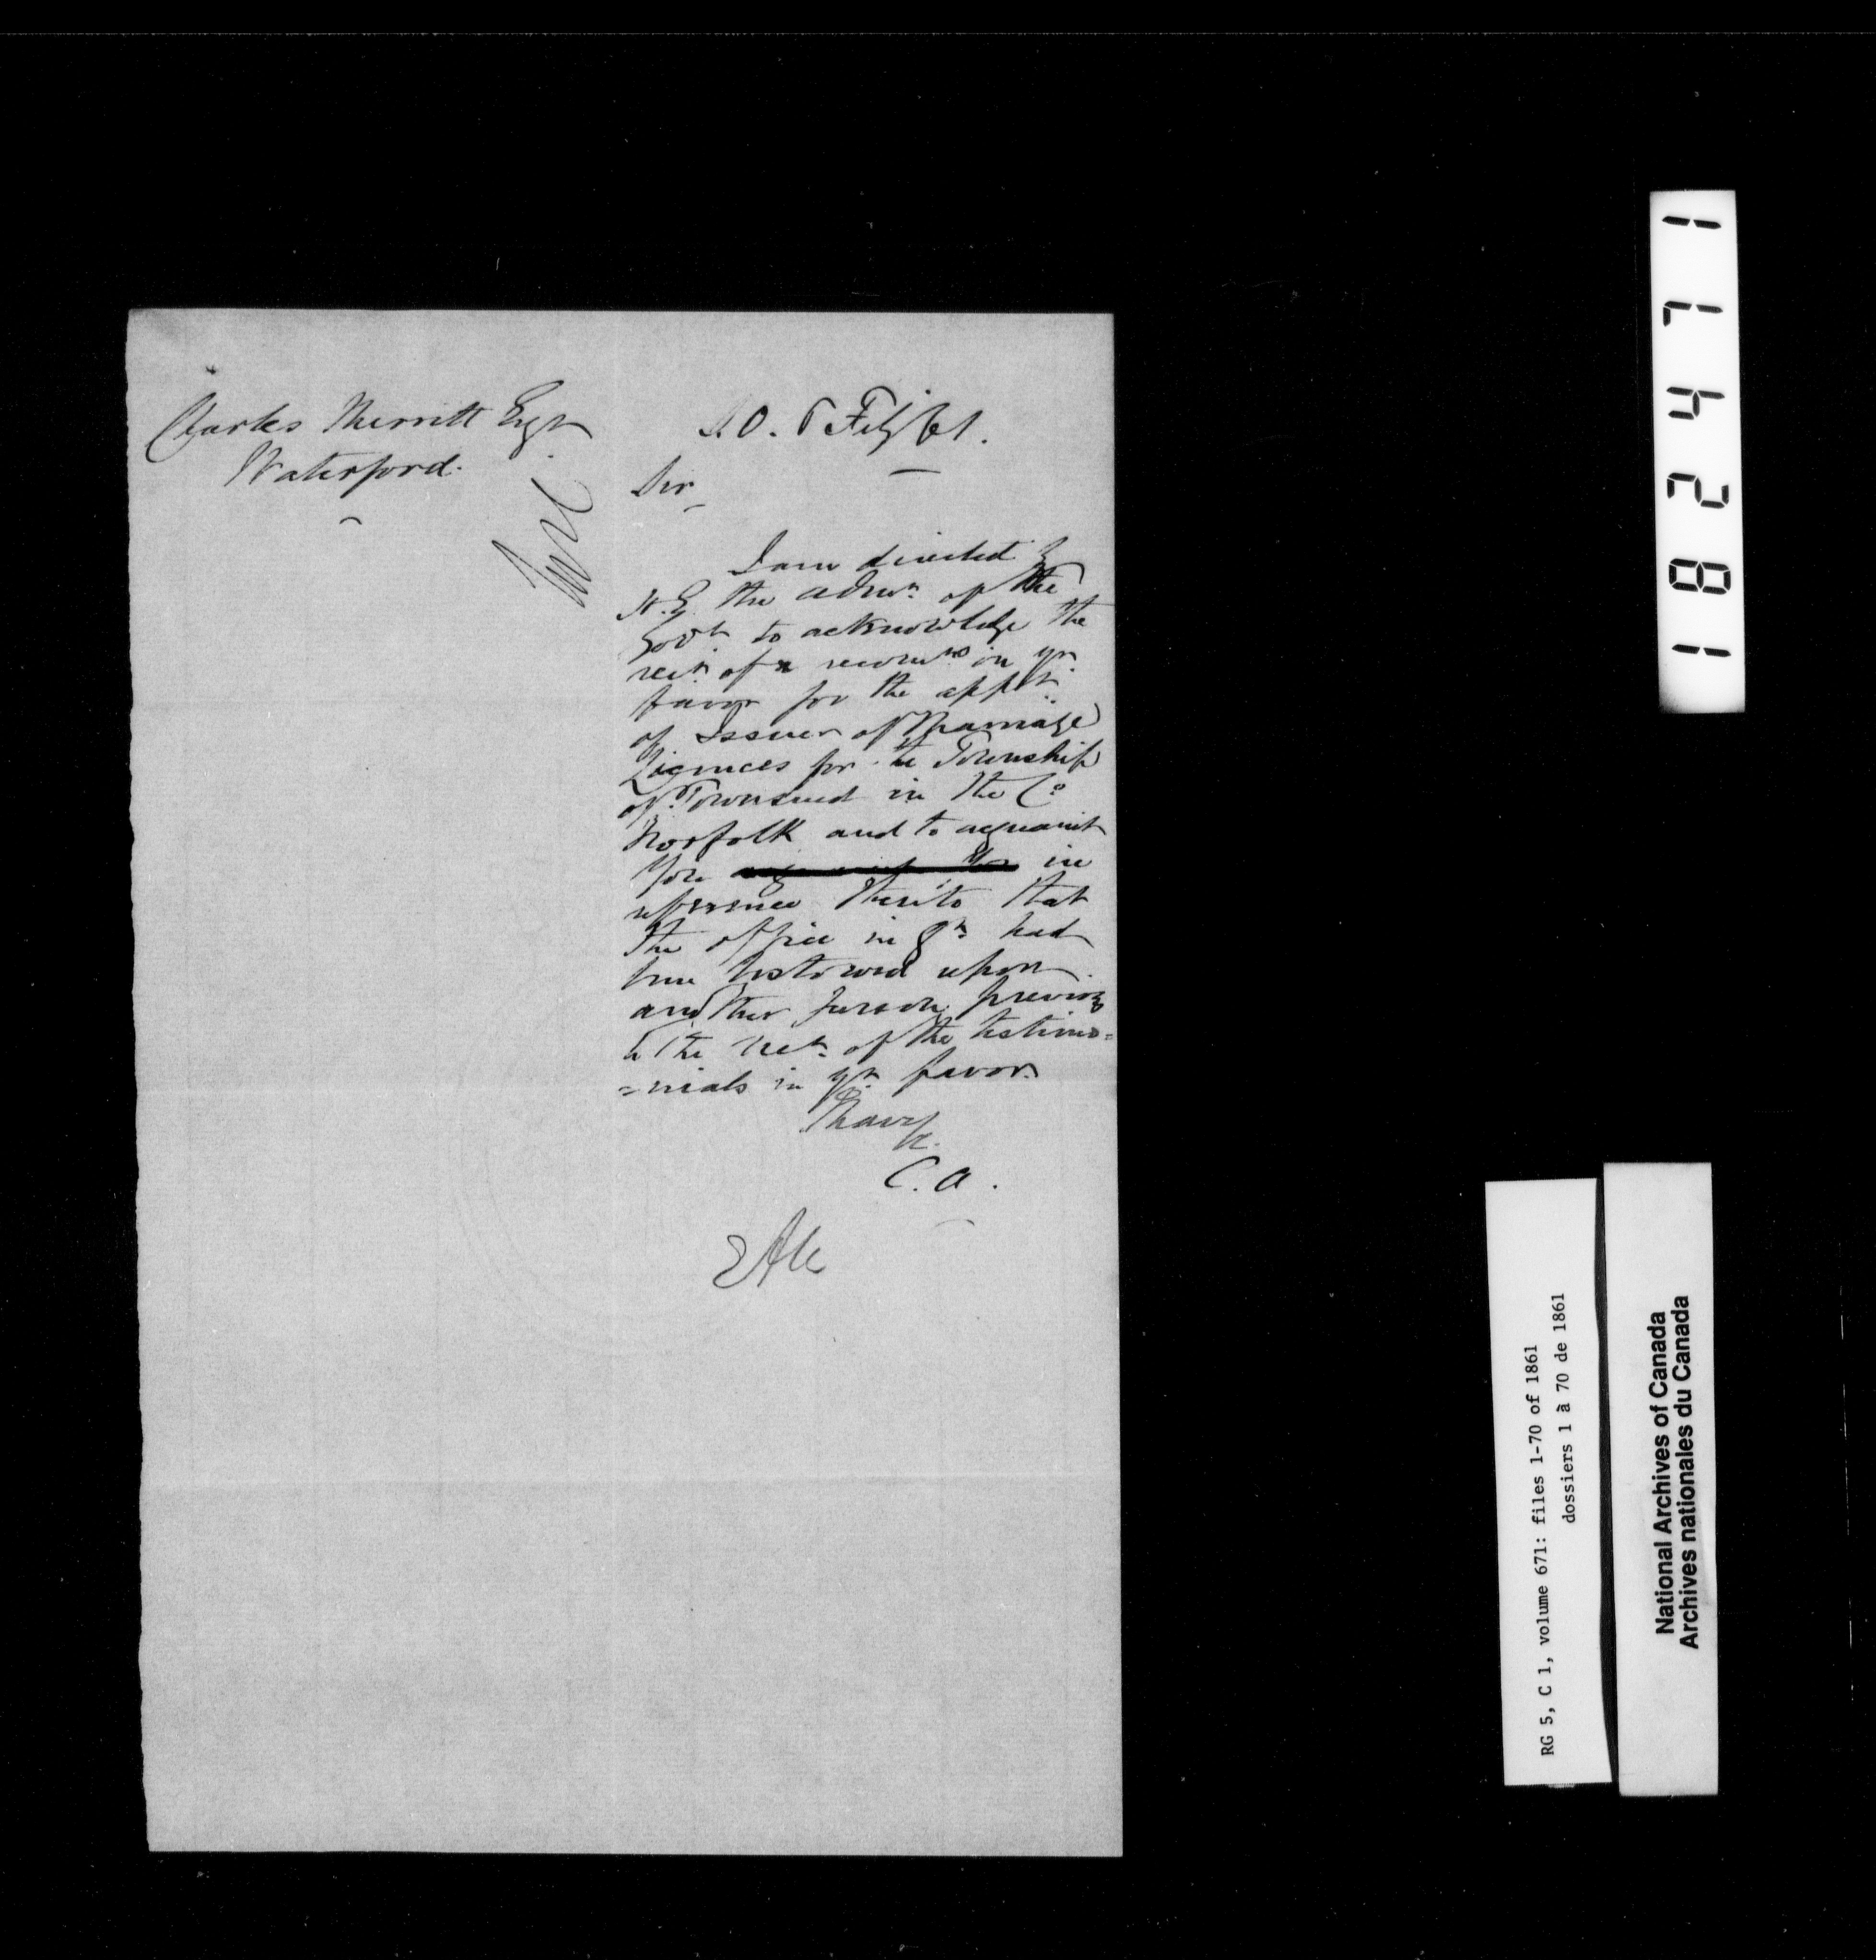 Charles Merritt Esqr
Waterford.
S.O. 6 Feby 61.
Sir
I am directed by
H.E. the Admr. of the
Govt to acknowledge the
rect. of a recomn. in yr.
favor for the appt.
of Issuer of Marriage
Licences for the Township
of Townsend in the Co.
Norfolk and to acquaint
You in
reference thereto that
the office in qn. had
been bestowed upon
another person previous
to the rect. of the testimo=
=nials in yr. favor.
I have &c.
C.A.
182471
RG 5, C 1, volume 671: files 1-70 of 1861
dossiers 1 à 70 de 1861
National Archives of Canada
Archives nationales du Canada